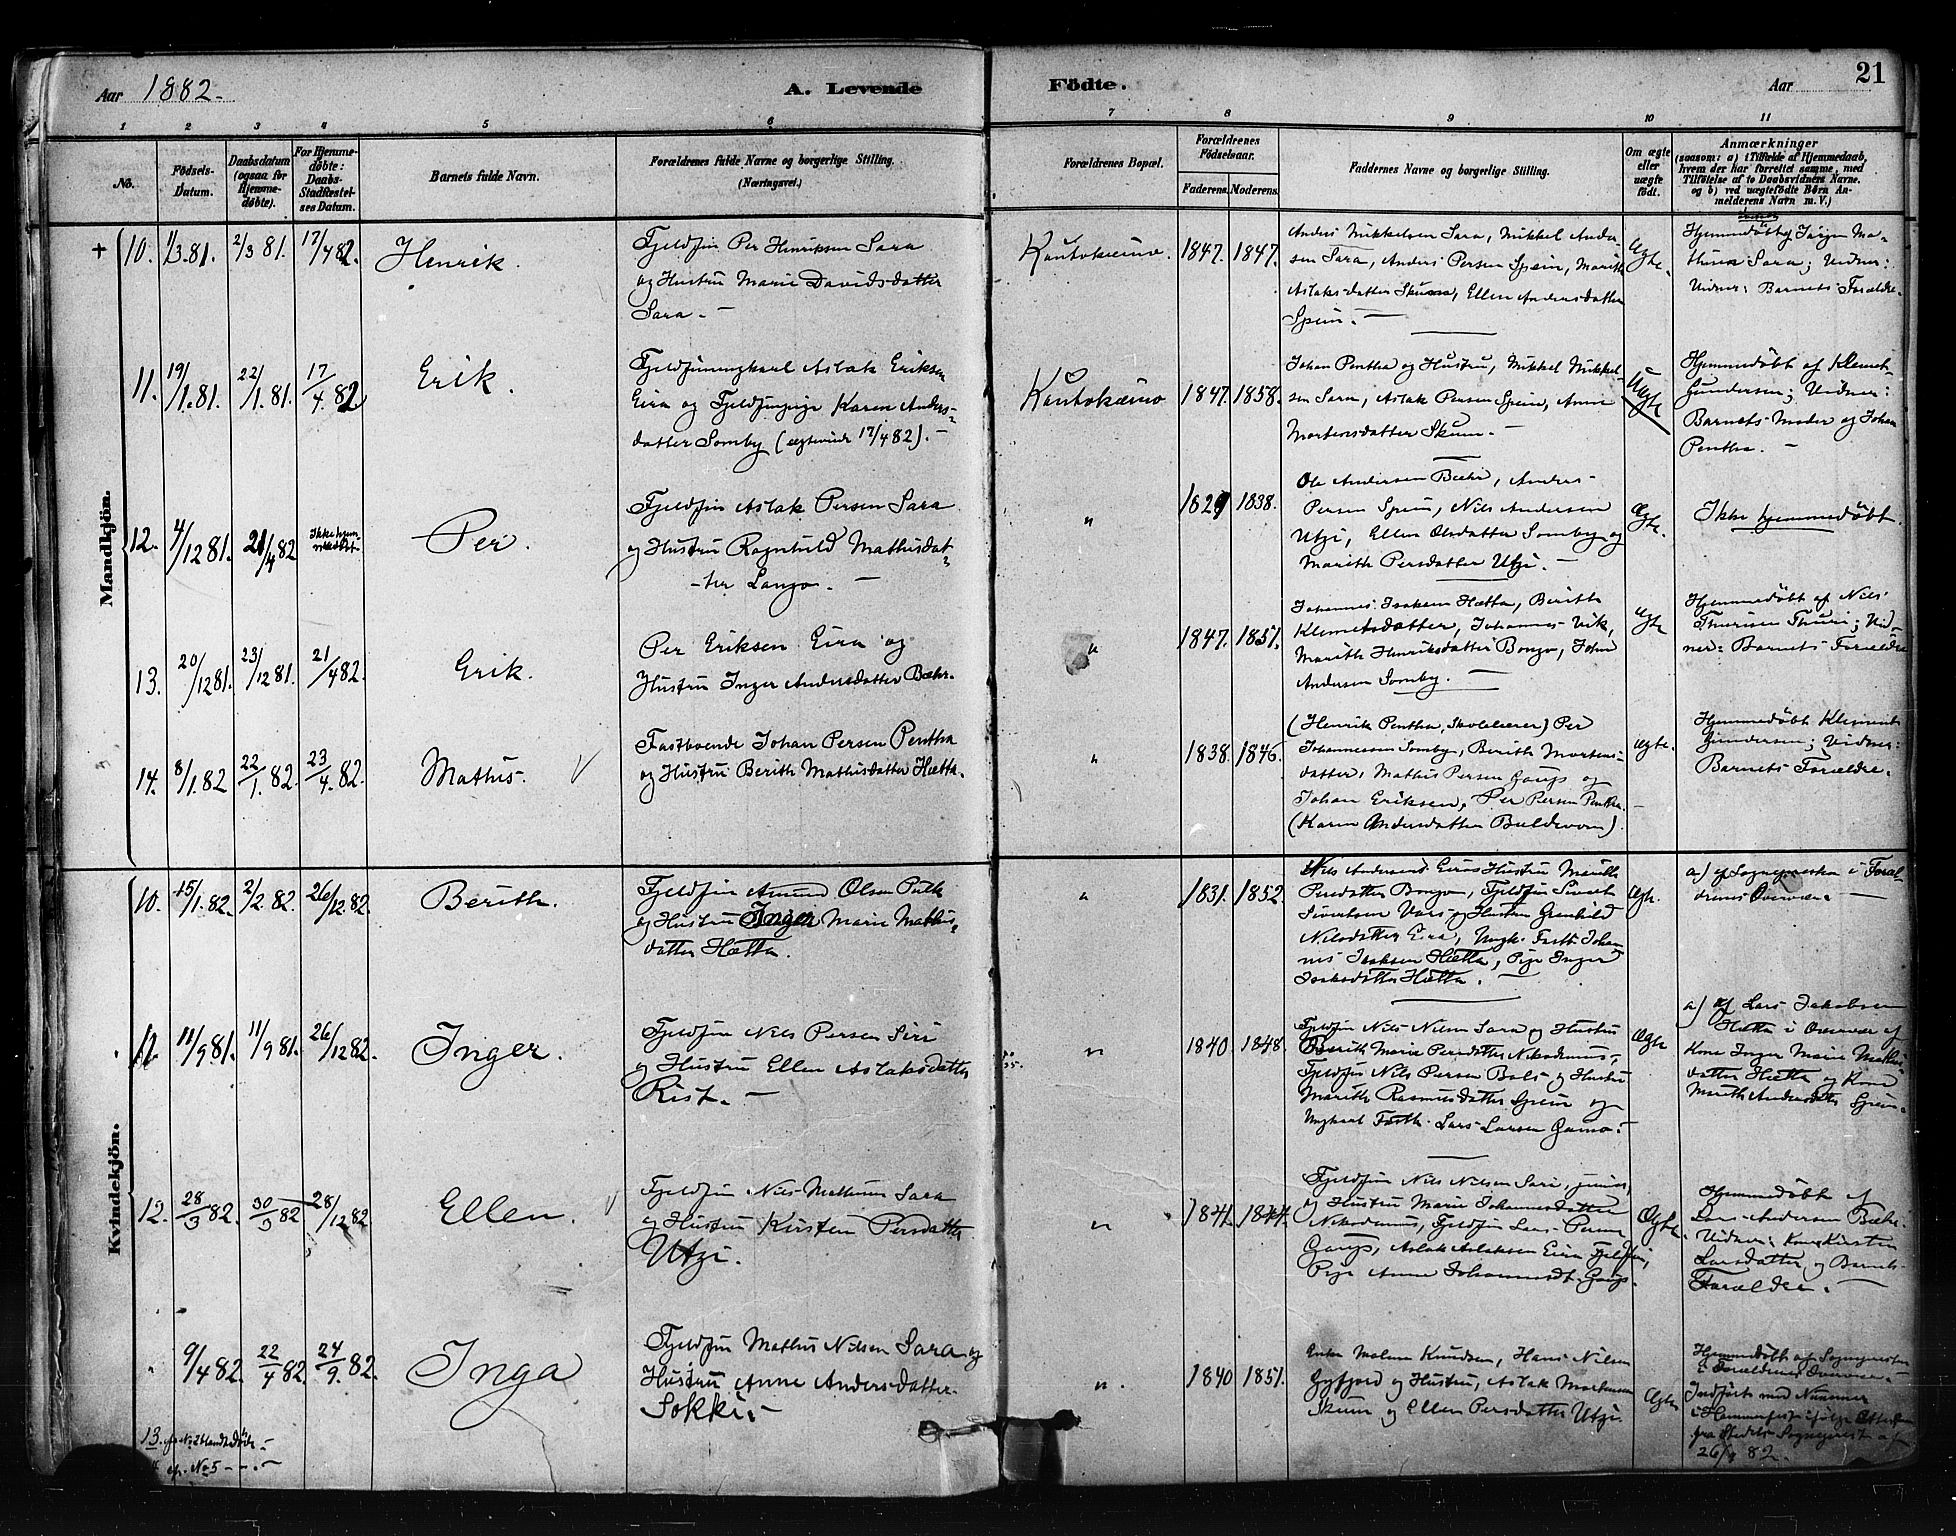 Aar 1882.
A. Levende Födte.
Aar
21
1 2 3 4 5 6 7 8 9 10 11
No.
Födsels-
Datum.
Daabsdatum
(ogsaa for
Hjemme-
døbte).
For Hjemme-
døbte:
Daabs-
Stadfæstel-
ses Datum.
Barnets fulde Navn.
Forældrenes fulde Navne og borgerlige Stilling.
(Næringsvei.)
Forældrenes Bopæl.
Forældrenes
Födselsaar.
Faderens. Moderens.
Faddernes Navne og borgerlige Stilling.
Om ægte
eller
uægte
født.
Anmærkninger
(saasom: a) i Tilfælde af Hjemmedaab,
hvem der har forrettet samme, med
Tilføielse af to Daabsvidners Navne,
og b) ved uægtefødte Børn An-
melderens Navn m. V.)
Mandkjön.
+ 10. 1/3.81. 2/3 81. 17/4 82. Henrik.
Fjeldfin Per Henriksen Sara
og Hustru Marie Davidsdatter
Sara. –
Kautokeino. 1847. 1847.
Anders Mikkelsen Sara, Mikkel Ander-
sen Sara, Anders Persen Spein, Marith
Aslaksdatter Skum, Ellen Andersdatter
Spein. –
Ægte.
Hjemmedøbt af Ma-
thisen Sara; Vidner:
Vidner: Barnets Forældre.
11. 19/1.81. 22/1.81. 17/4.82 Erik.
Fjeldfinungkarl Aslak Eriksen
Eira og Fjeldfinpige Karen Anders-
datter Somby (ægteviede 17/4 82). –
Kautokeino 1847. 1858.
Johan Pentha og Hustru, Mikkel Mikkel-
sen Sara, Aslak Persen Spein, Anne
Mortensdatter Skum. –
Uægte
Hjemmedøbt af Klemet
Gundersen; Vidner:
Barnets Moder og Johan
Pentha. –
12. 4/12 81. 21/4 82 Per.
Fjeldfin Aslak Persen Sara
og Hustru Ragnhild Mathisdat-
ter Lango. –
" 1829 1838.
Ole Andersen Bæhr, Anders
Persen Spein, Nils Andersen
Utzi, Ellen Olsdatter Somby og
Marith Persdatter Utzi. –
Ægte.
Ikke hjemmedøbt.
13. 20/12 81. 23/12 81. 21/4 82. Erik.
Per Eriksen Eira og
Hustru Inger Andersdatter Bæhr.
" 1847. 1851.
Johannes Isaksen Hætta, Berith
Klemetsdatter, Johannes Vik,
Marith Henriksdatter Bongo, John
Andersen Somby. –
Ægte
Hjemmedøbt af Nils
Thurisen Thuri; Vid-
ner: Barnets Forældre
14. 8/1.82 22/1.82. 23/4.82. Mathis. V
Fastboende Johan Persen Pentha
og Hustru Berith Mathisdatter Hætta.
" 1838. 1846.
(Henrik Pentha, Skolelærer) Per
Johannessen Somby, Berith Mortens-
datter, Mathis Persen Gaup og
Johan Eriksen, Per Persen Pentha.
(Karen Andersdatter Buldevom).
Ægte.
Hjemmedøbt Klemet
Gundersen; Vidner:
Barnets Forældre.
Kvindekjön.
10. 15/1.82. 2/2.82. 26/12.82. Berith.
Fjeldfin Amund Olsen Pulk
og Hustru Inger Marie Mathis-
datter Hætta.
" 1831. 1852.
Nils Andersens Eiras Hustru Marith
Persdatter Bongo, Fjeldfin Sivert
Sivertsen Vars og Hustru Gunhild
Nilsdatter Eira, Ungk. Fastb. Johan-
nes Isaksen Hætta, Pige Inger
Isaksdatter Hætta. –
Ægte.
a) af Sognepresten i Foræl-
drenes Overvær. –
11. 11/9 81. 11/9 81. 26/12 82. Inger.
Fjeldfin Nils Persen Siri
og Hustru Ellen Aslaksdatter
Rist. –
" 1840 1848.
Fjeldfin Nils Nilsen Sara og Hustru
Berith Marie Persdatter Nikodemus,
Fjeldfin Nils Persen Bals og Hustru
Marith Rasmusdatter Spein og
Ungkarl Fastb. Lars Larsen Gaino.
Ægte
a) af Lars Jakobsen
Hætta i Overvær af
Kone Inger Marie Mathis-
datter Hætta og Kone
Marith Andersdatter Spein.
12. 28/3 82. 30/3 82 28/12 82 Ellen. V
Fjeldfin Nils Mathisen Sara
og Hustru Kirsten Persdatter
Utzi.
" 1841. 1844.
Fjeldfin Nils Nilsen Sara, junior,
og Hustru Marie Johannesdatter
Nikodemus, Fjeldfin Lars Persen
Gaup, Aslak Aslaksen Eira Fjeldfin,
Pige Anne Johannesdt. Gaup.
Ægte.
Hjemmedøbt af
Lars Andersen Bæhr.
Vidner: Kone Kirsten
Larsdatter og Barnets
Forældre. –
" 9/4 82. 22/4 82. 24/9.82. Inga
Fjeldfin Mathis Nilsen Sara og
Hustru Anne Andersdatter
Sokki. –
" 1840 1851.
Enke Malene Knudsen, Hans Nilsen
og Hustru, Aslak Mortensen
Skum og Ellen Persdatter Utzi.
Ægte
Hjemmedøbt af Sognepresten
i Forældrenes Overvær.
Indført med Nummer
i Hammerfest ifølge Attest
fra Stedets Sognepræst af
26/9 82.
13. efr. No 2 blandt døde. –
efr. No 5 – – . –